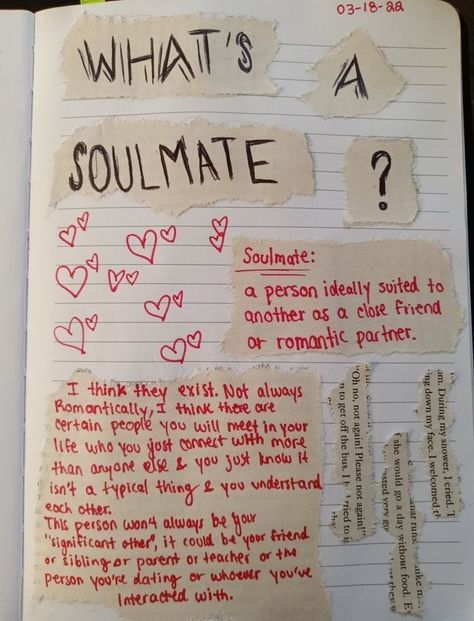 03-18-22
WHAT'S A
SOULMATE ?
Soulmate:
a person ideally suited to
another as a close friend
or romantic partner.
I think they exist. Not always
Romantically, I think there are
certain people you will meet in your
life who you just connect with more
than anyone else & you just know it
isn't a typical thing & you understand
each other.
This person won't always be your
"significant other", it could be your friend
or sibling or parent or teacher or the
person you're dating or whoever you've
interacted with.
"Oh no, not again! Please not again!"
to get off the bus. I
tried to
om. During my
snower, I cried. T
ing down my face. I welcomed
she would go a day without food. E